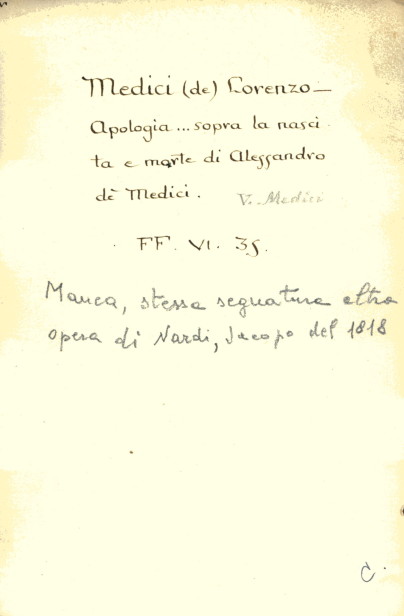 Medici (de) Lorenzo —
Apologia ... sopra la nasci
ta e morte di Alessandro
dè Medici. V. Medici
FF. VI. 35.
Manca, stessa segnatura altra
opera di Nardi, Jacopo del 1818
C.